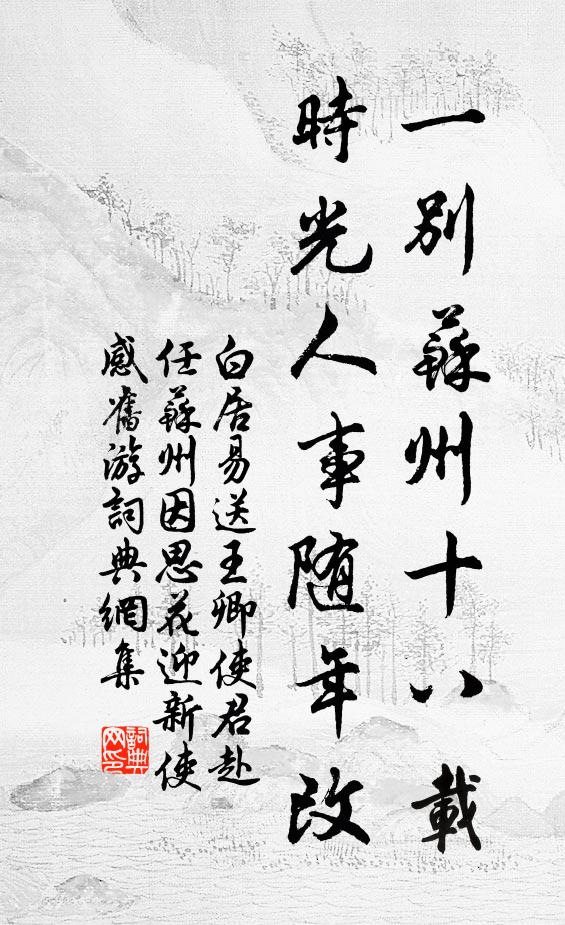 一別蘇州十八載
時光人事随年改
白居易送王卿使君赴
任蘇州因思花迎新使
感舊游詞典網集
詞典
网印